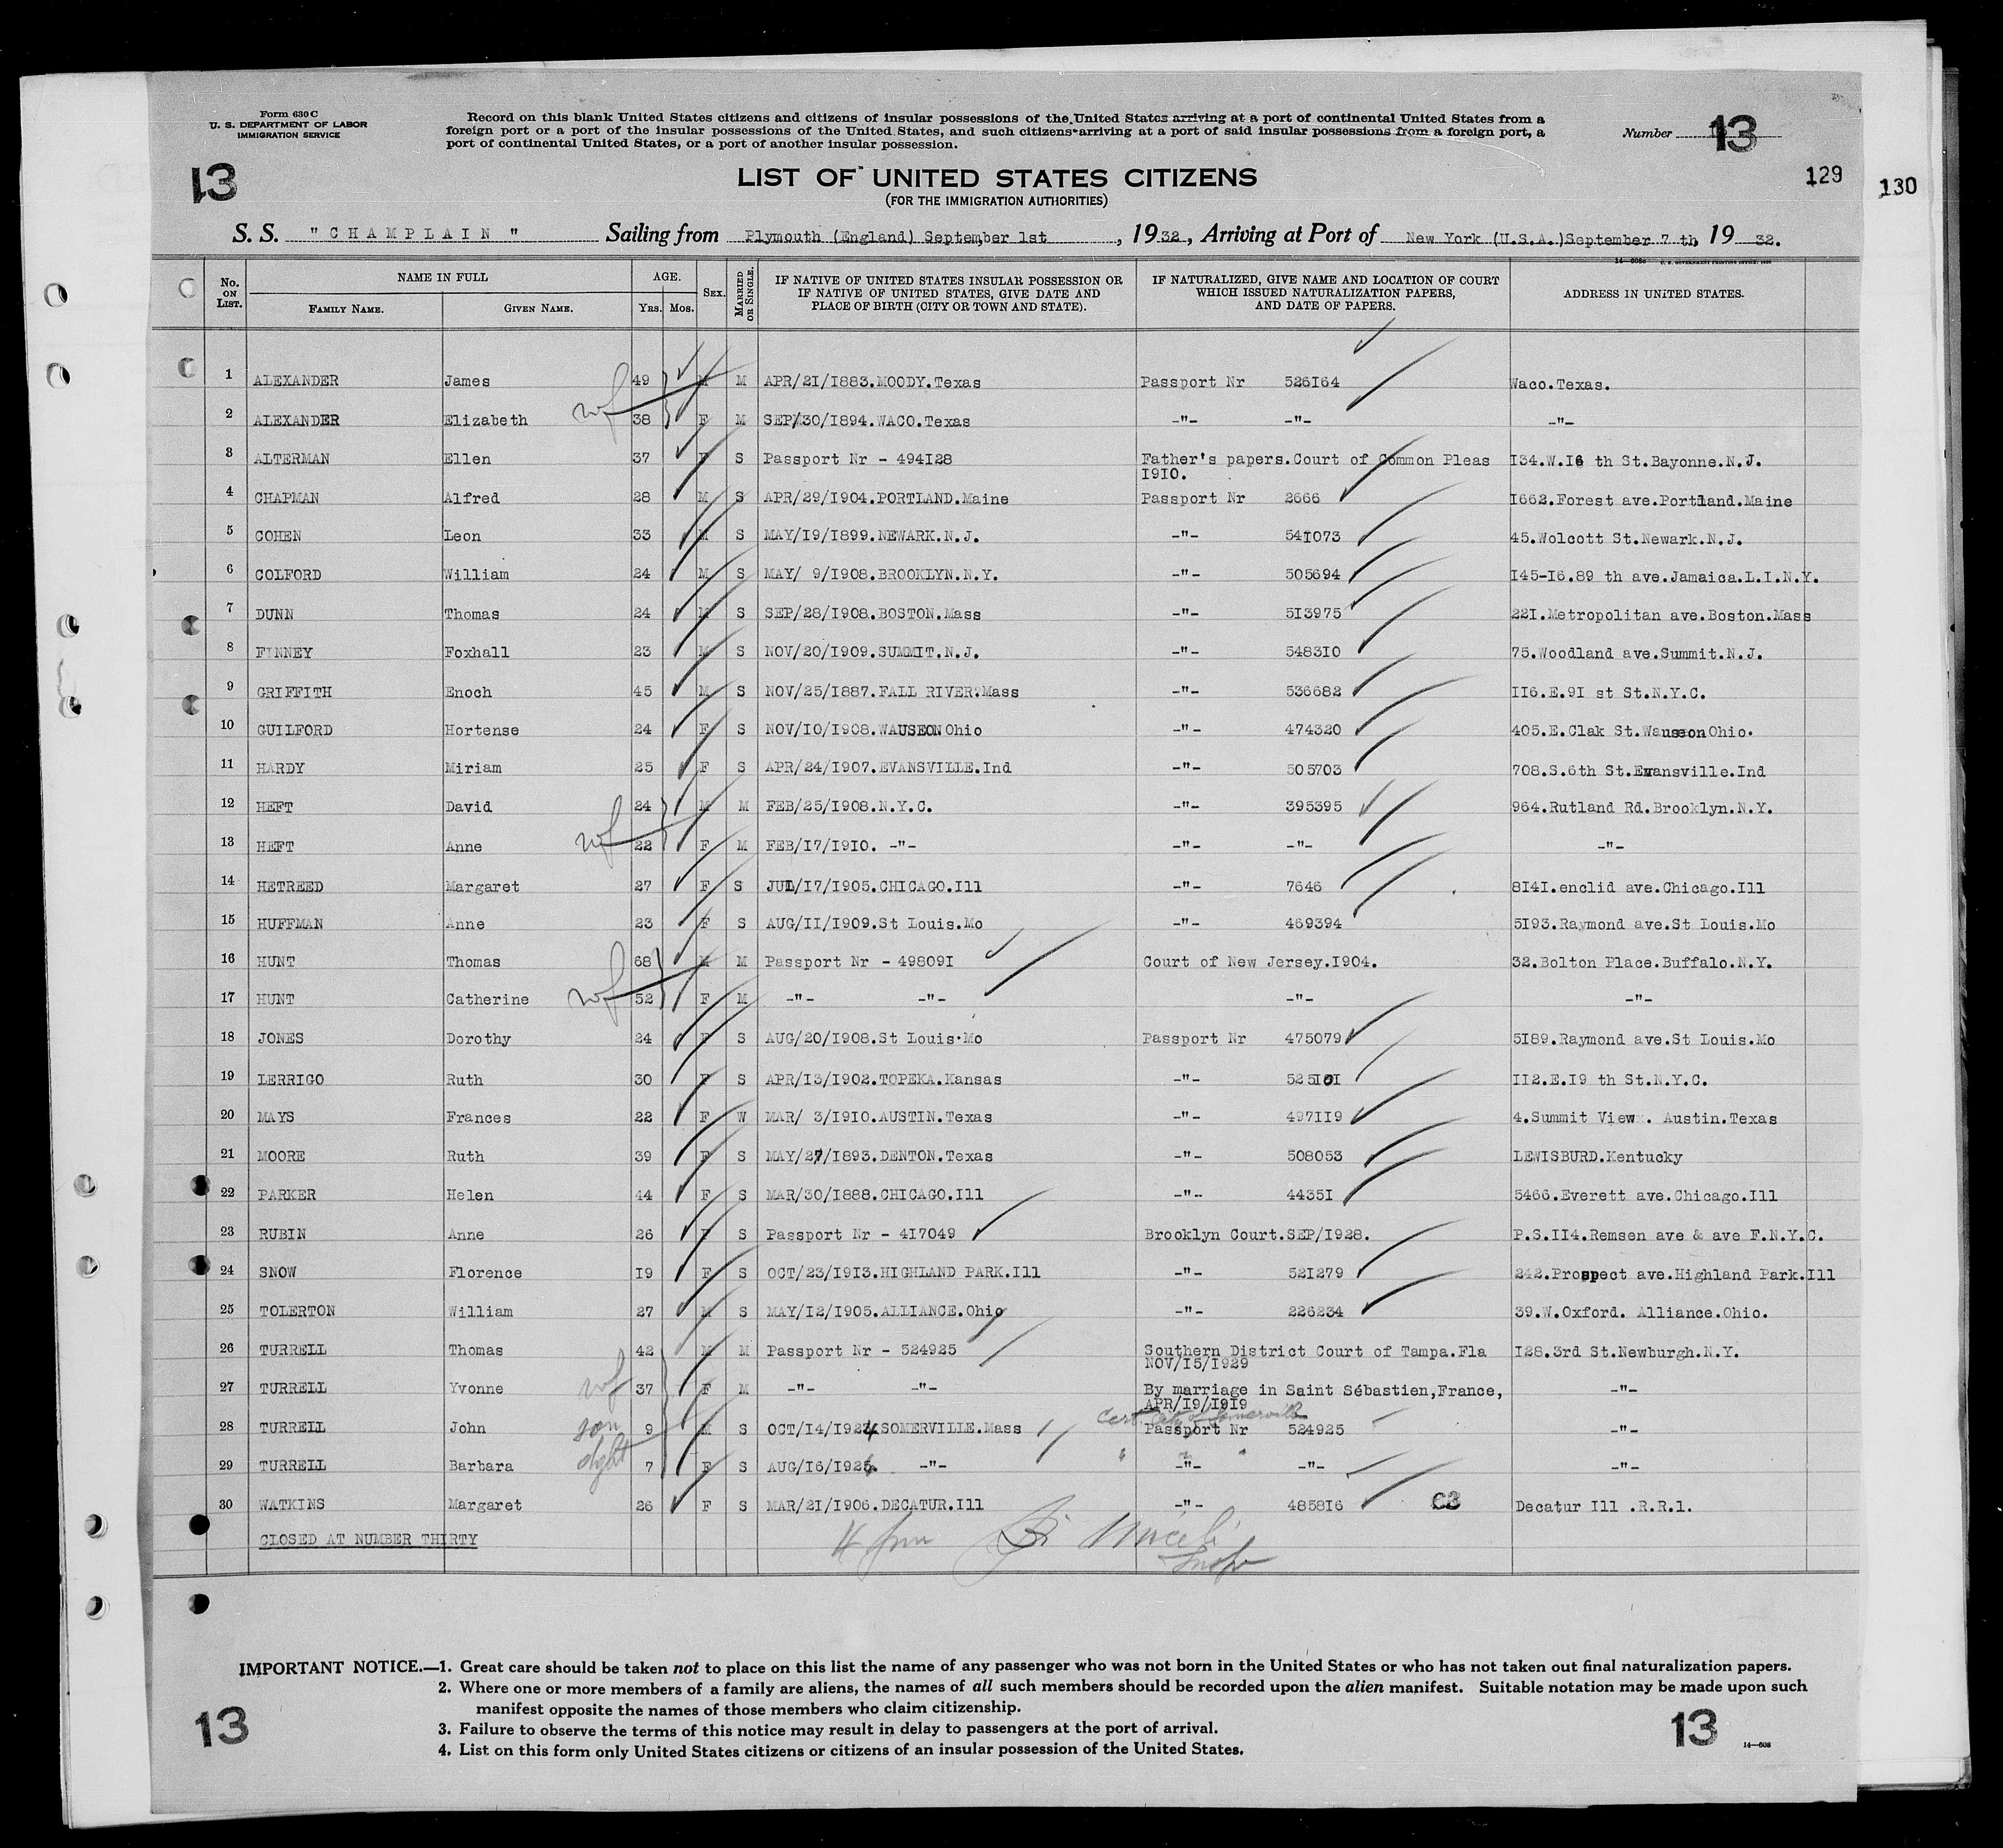 Form 630 C
U. S. DEPARTMENT OF LABOR
IMMIGRATION SERVICE
Record on this blank United States citizens and citizens of insular possessions of the United States arriving at a port of continental United States from a
foreign port or a port of the insular possessions of the United States, and such citizens arriving at a port of said insular possessions from a foreign port, a
port of continental United States, or a port of another insular possession.
Number 13
13
129
130
LIST OF UNITED STATES CITIZENS
(FOR THE IMMIGRATION AUTHORITIES)
S. S. "CHAMPLAIN" Sailing from Plymouth (England) September 1st, 1932, Arriving at Port of New York (U.S.A.) September 7 th, 1932.
No. ON LIST. NAME IN FULL FAMILY NAME. GIVEN NAME. AGE. YRS. MOS. SEX. MARRIED OR SINGLE. IF NATIVE OF UNITED STATES INSULAR POSSESSION OR IF NATIVE OF UNITED STATES, GIVE DATE AND PLACE OF BIRTH (CITY OR TOWN AND STATE). IF NATURALIZED, GIVE NAME AND LOCATION OF COURT WHICH ISSUED NATURALIZATION PAPERS, AND DATE OF PAPERS. ADDRESS IN UNITED STATES.
1 ALEXANDER James 49 M M APR/21/1883.MOODY.Texas Passport Nr 526164 Waco.Texas.
2 ALEXANDER Elizabeth wf 38 F M SEP/30/1894.WACO.Texas -"- -"- -"-
3 ALTERMAN Ellen 37 F S Passport Nr - 494128 Father's papers.Court of Common Pleas 134.W.16 th St.Bayonne.N.J.
1910.
4 CHAPMAN Alfred 28 M S APR/29/1904.PORTLAND.Maine Passport Nr 2666 1662.Forest ave.Portland.Maine
5 COHEN Leon 33 M S MAY/19/1899.NEWARK.N.J. -"- 541073 45.Wolcott St.Newark.N.J.
6 COLFORD William 24 M S MAY/ 9/1908.BROOKLYN.N.Y. -"- 505694 145-16.89 th ave.Jamaica.L.I.N.Y.
7 DUNN Thomas 24 M S SEP/28/1908.BOSTON.Mass -"- 513975 221.Metropolitan ave.Boston.Mass
8 FINNEY Foxhall 23 M S NOV/20/1909.SUMMIT.N.J. -"- 548310 75.Woodland ave.Summit.N.J.
9 GRIFFITH Enoch 45 M S NOV/25/1887.FALL RIVER.Mass -"- 536682 116.E.91 st St.N.Y.C.
10 GUILFORD Hortense 24 F S NOV/10/1908.WAUSEON Ohio -"- 474320 405.E.Clak St.Wauseon Ohio.
11 HARDY Miriam 25 F S APR/24/1907.EVANSVILLE.Ind -"- 505703 708.S.6th St.Evansville.Ind
12 HEFT David 24 M M FEB/25/1908.N.Y.C. -"- 395395 964.Rutland Rd.Brooklyn.N.Y.
13 HEFT Anne wf 22 F M FEB/17/1910. -"- -"- -"- -"-
14 HETREED Margaret 27 F S JUL/17/1905.CHICAGO.Ill -"- 7646 8141.enclid ave.Chicago.Ill
15 HUFFMAN Anne 23 F S AUG/11/1909.St Louis.Mo -"- 469394 5193.Raymond ave.St Louis.Mo
16 HUNT Thomas 68 M M Passport Nr - 498091 Court of New Jersey.1904. 32.Bolton Place.Buffalo.N.Y.
17 HUNT Catherine wf 52 F M -"- -"- -"- -"-
18 JONES Dorothy 24 F S AUG/20/1908.St Louis.Mo Passport Nr 475079 5189.Raymond ave.St Louis.Mo
19 LERRIGO Ruth 30 F S APR/13/1902.TOPEKA.Kansas -"- 525101 112.E.19 th St.N.Y.C.
20 MAYS Frances 22 F W MAR/ 3/1910.AUSTIN.Texas -"- 497119 4.Summit View . Austin.Texas
21 MOORE Ruth 39 F S MAY/27/1893.DENTON.Texas -"- 508053 LEWISBURD.Kentucky
22 PARKER Helen 44 F S MAR/30/1888.CHICAGO.Ill -"- 44351 5466.Everett ave.Chicago.Ill
23 RUBIN Anne 26 F S Passport Nr - 417049 Brooklyn Court.SEP/1928. P.S.114.Remsen ave & ave F.N.Y.C.
24 SNOW Florence 19 F S OCT/23/1913.HIGHLAND PARK.Ill -"- 521279 242.Prospect ave.Highland Park.Ill
25 TOLERTON William 27 M S MAY/12/1905.ALLIANCE.Ohio -"- 226234 39.W.Oxford. Alliance.Ohio.
26 TURRELL Thomas 42 M M Passport Nr - 524925 Southern District Court of Tampa.Fla 128.3rd St.Newburgh.N.Y.
NOV/15/1929
27 TURRELL Yvonne wf 37 F M -"- -"- By marriage in Saint Sébastien,France, -"-
APR/19/1919
Cert City of Somerville
28 TURRELL John son 9 M S OCT/14/1924 SOMERVILLE.Mass Passport Nr 524925 -"-
29 TURRELL Barbara dght 7 F S AUG/16/1925. -"- -"- -"- -"-
30 WATKINS Margaret 26 F S MAR/21/1906.DECATUR.Ill -"- 485816 C3 Decatur Ill .R.R.1.
CLOSED AT NUMBER THIRTY
Insp
IMPORTANT NOTICE.—1. Great care should be taken not to place on this list the name of any passenger who was not born in the United States or who has not taken out final naturalization papers.
2. Where one or more members of a family are aliens, the names of all such members should be recorded upon the alien manifest. Suitable notation may be made upon such
manifest opposite the names of those members who claim citizenship.
3. Failure to observe the terms of this notice may result in delay to passengers at the port of arrival.
4. List on this form only United States citizens or citizens of an insular possession of the United States.
13
13
14—608